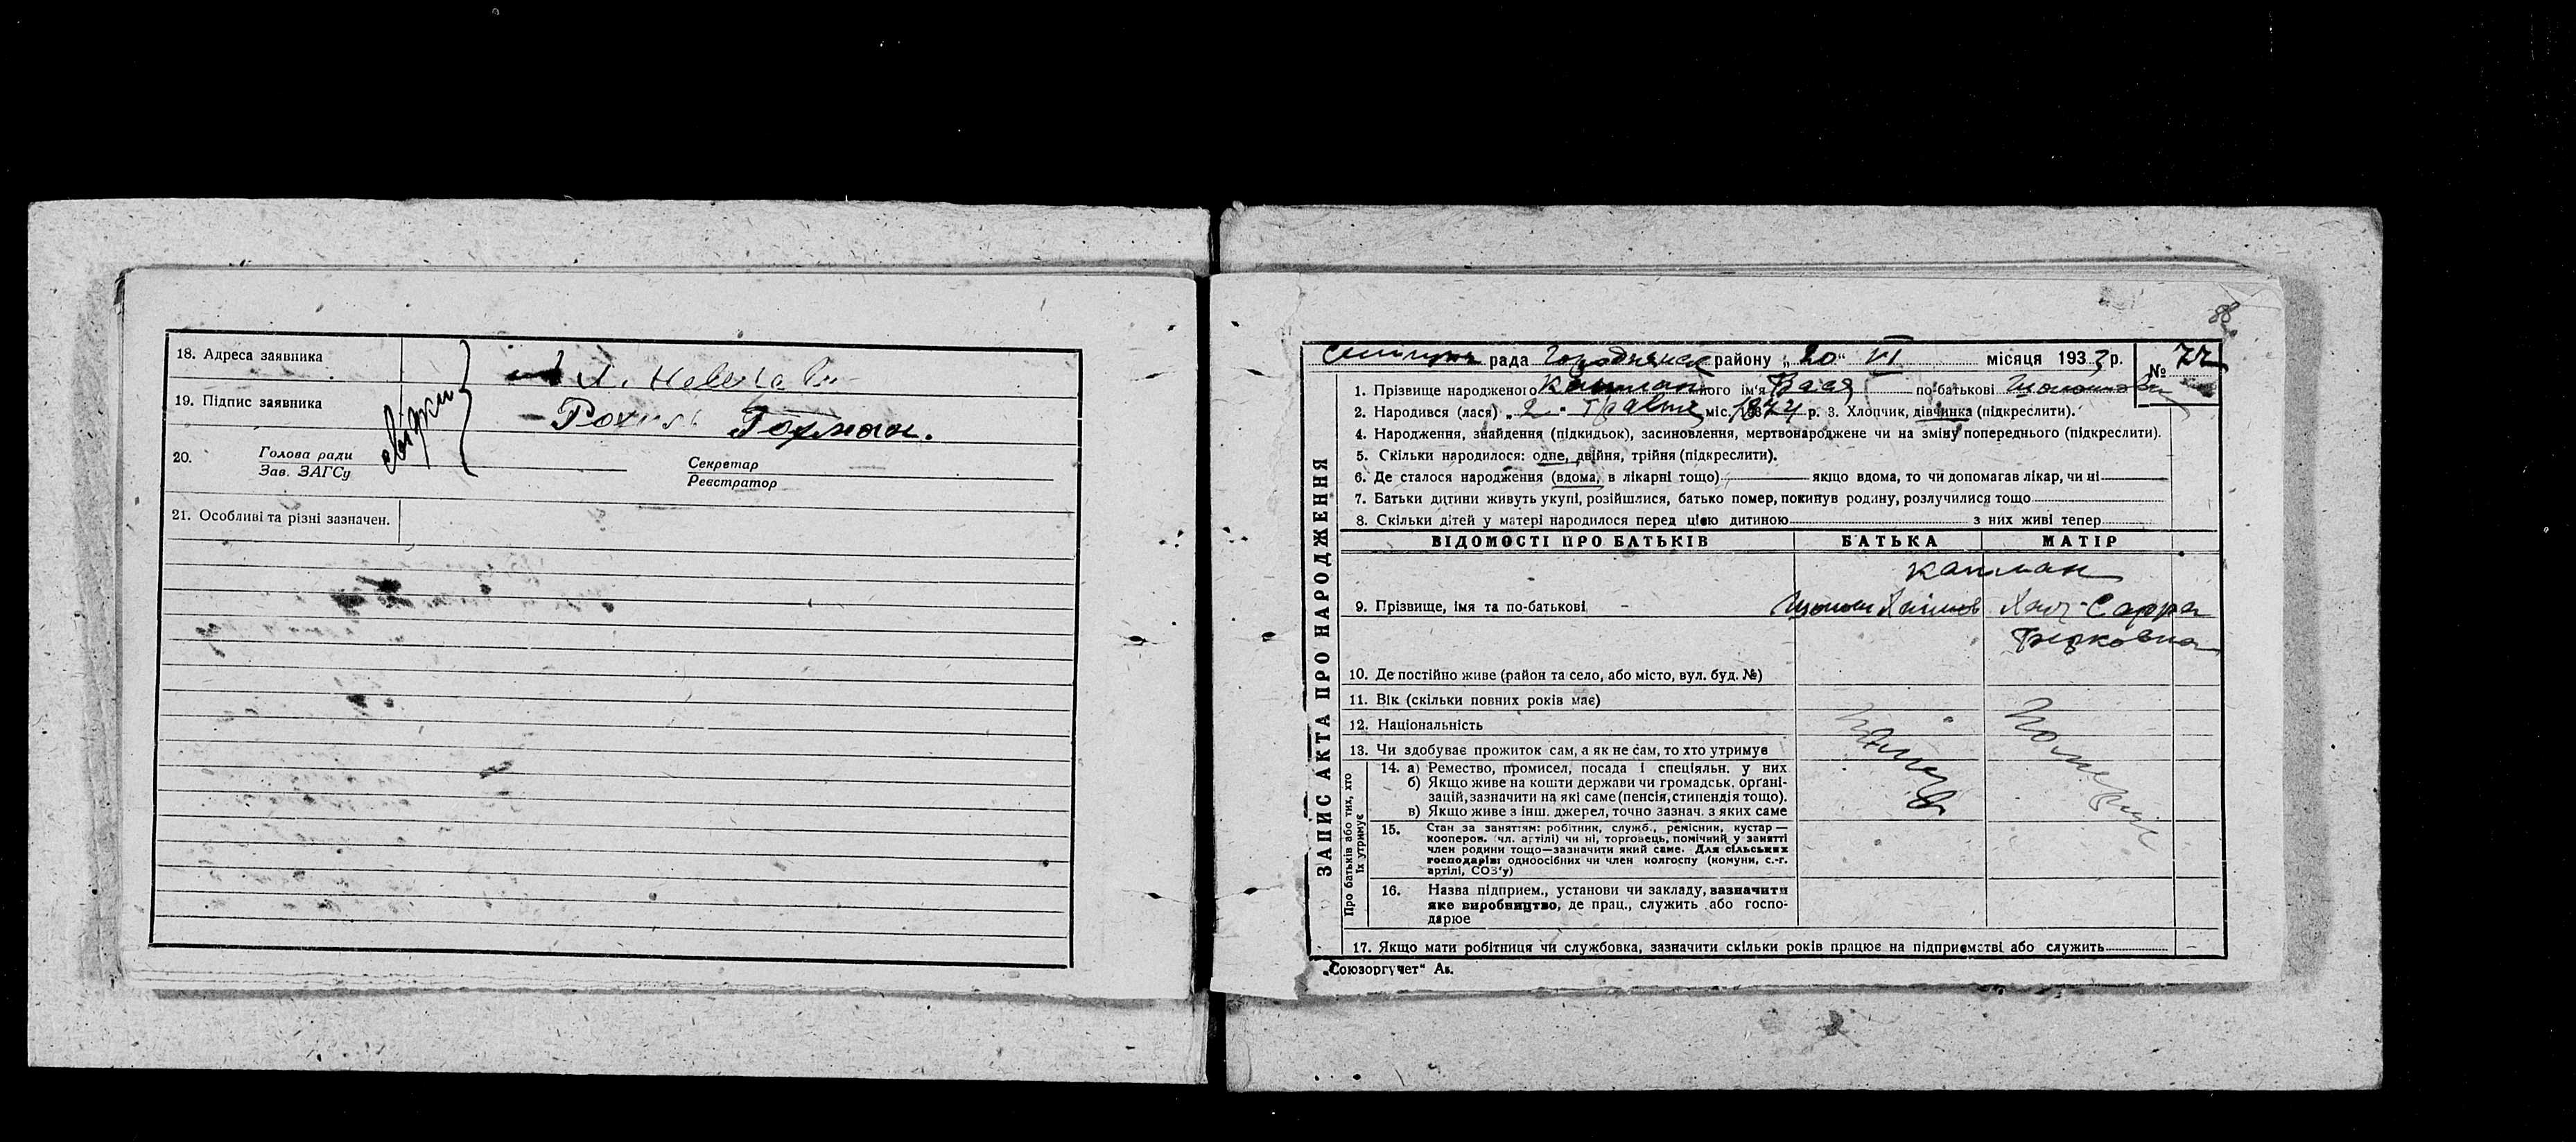 18. Адреса заявника
19. Підпис заявника
Свідки
Рохиль Гохман.
20. Голова ради
Зав. ЗАГСу
Секретар
Реєстратор
21. Особливі та різні зазначен.
88
рада району „20“ VI місяця 1933 р. № 72
1. Прізвище народженого Каплан ного ім'я Бася по-батькові
2. Народився (лася) „2“ травня міс. 1874 р. 3. Хлопчик, дівчинка (підкреслити).
4. Народження, знайдення (підкидьок), засиновлення, мертвонароджене чи на зміну попереднього (підкреслити).
5. Скільки народилося: одне, двійня, трійня (підкреслити).
6. Де сталося народження (вдома, в лікарні тощо) якщо вдома, то чи допомагав лікар, чи ні
7. Батьки дитини живуть укупі, розійшлися, батько помер, покинув родину, розлучилися тощо
8. Скільки дітей у матері народилося перед цією дитиною з них живі тепер
ЗАПИС АКТА ПРО НАРОДЖЕННЯ
ВІДОМОСТІ ПРО БАТЬКІВ БАТЬКА МАТІР
Каплан
9. Прізвище, імя та по-батькові Хаімов Хая-Сарра
Берковна
10. Де постійно живе (район та село, або місто, вул. буд. №)
11. Вік (скільки повних років має)
12. Національність
13. Чи здобуває прожиток сам, а як не сам, то хто утримує
Про батьків або тих, хто їх утримує
14. а) Ремество, промисел, посада і спеціяльн. у них
б) Якщо живе на кошти держави чи громадськ. органі-
зацій, зазначити на які саме (пенсія, стипендія тощо).
в) Якщо живе з інш. джерел, точно зазнач. з яких саме
15. Стан за заняттям: робітник, служб., ремісник, кустар —
кооперов. чл. артілі) чи ні, торговець, помічний у занятті
член родини тощо—зазначити який саме. Для сільських
господарів: одноосібних чи член колгоспу (комуни, с.-г.
артілі, СОЗ'у)
16. Назва підприєм., установи чи закладу, зазначити
яке виробництво, де прац., служить або госпо-
дарює
17. Якщо мати робітниця чи службовка, зазначити скільки років працює на підприємстві або служить
„Союзоргучет“ Ак.